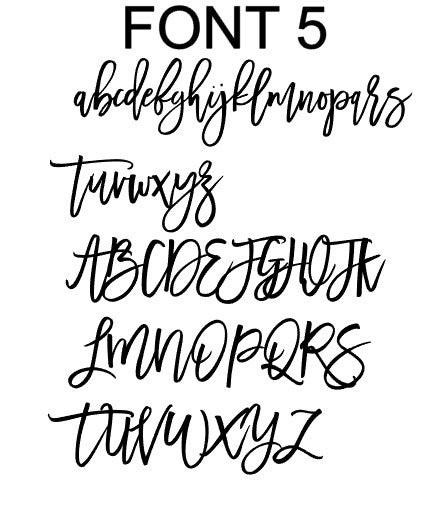 FONT 5
abcdefghijklmnopqrs
tuvwxyz
ABCDEFGHIJK
LMNOPQRS
TUVWXYZ